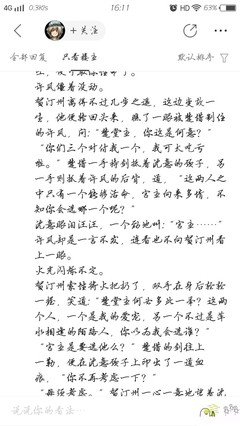 4G 0.3K/s 16:11 HD 63%
+ 关注
全部回复 只看楼主 默认排序
许风懂着没动。
贺汀州离得不过几步之遥，这边变故一
生，他便转回头来，瞧了一眼被楚惜制住
的许风，问：“楚堂主，你这是何意？”
“你们三个对付我一个，我可太吃亏
啦。”楚惜一手将剑抵着沈意的颈子，另
一手则抵着许风的后背，道，“这两人之
中只有一个能够活命，宫主向来多情，不
知你会选哪一个呢？”
沈意眼泪汪汪，一个劲地叫：“宫主……”
许风却是一言不发，连看也不向贺汀州看
上一眼。
火光闪烁不定。
贺汀州索性将火把扔了，双手在身后轻轻
一拍，笑道：“楚堂主何必多此一举？这两
个人，一个是我的爱宠，另一个不过是萍
水相逢的陌路人，你以为我会选谁？”
“宫主是要选他么？”楚惜的剑往上
一勒，便在沈意颈子上印出了一道血
痕，“你不再考虑一下？”
“无须考虑。”贺汀州一心一意地望着沈
说说你的看法…